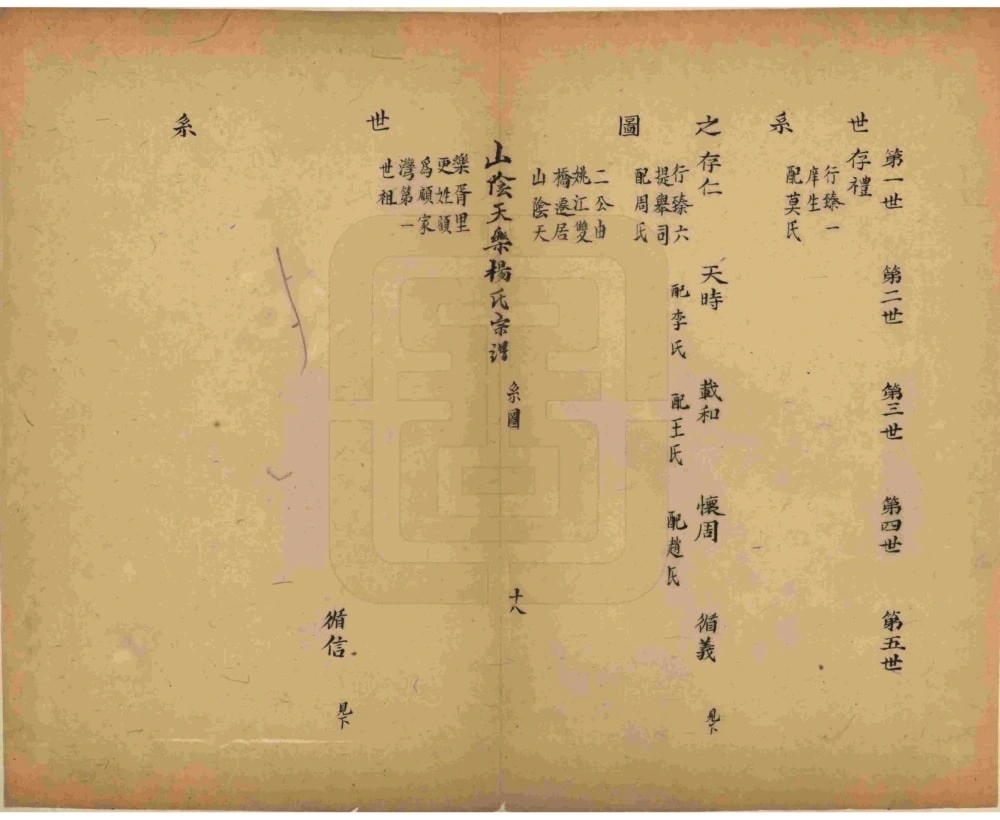 第一世
第二世
第三世
第四世
第五世
世系之圖
存禮
行臻一
庠生
配莫氏
存仁
行臻六
提舉司
配周氏
天時
配李氏
載和
配王氏
懷周
配趙氏
循義
見下
二公由
姚江雙
橋遷居
山陰天
山陰天樂楊氏宗譜
系圖
十八
樂胥里
更姓顧
為顧家
灣第一
世祖
世系
循信
見下